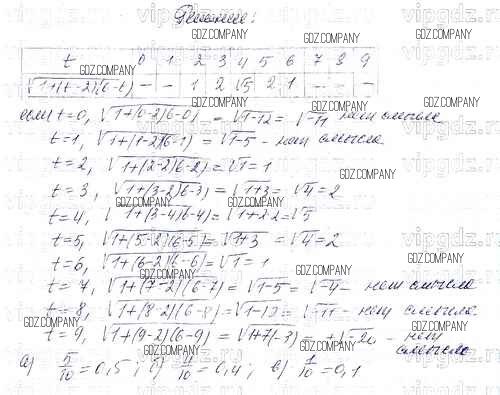 Решение:
t 0 1 2 3 4 5 6 7 8 9
√1+(t-2)(6-t) - - 1 2 √5 2 1 - - -
если t=0, √1+(0-2)(6-0) = √1-12 = √-11 нет смысла
t=1, √1+(1-2)(6-1) = √1-5 - нет смысла
t=2, √1+(2-2)(6-2) = √1 = 1
t=3, √1+(3-2)(6-3) = √1+3 = √4 = 2
t=4, √1+(3-4)(6-4) = √1+2·2 = √5
t=5, √1+(5-2)(6-5) = √1+3 = √4 = 2
t=6, √1+(6-2)(6-6) = √1 = 1
t=7, √1+(7-2)(6-7) = √1-5 = √-4 - нет смысла
t=8, √1+(8-2)(6-8) = √1-12 = √-11 - нет смысла
t=9, √1+(9-2)(6-9) = √1+7(-3) = √-20 - нет смысла
а) 5/10 = 0,5; б) 4/10 = 0,4; в) 1/10 = 0,1
GDZ.COMPANY
vipgdz.ru